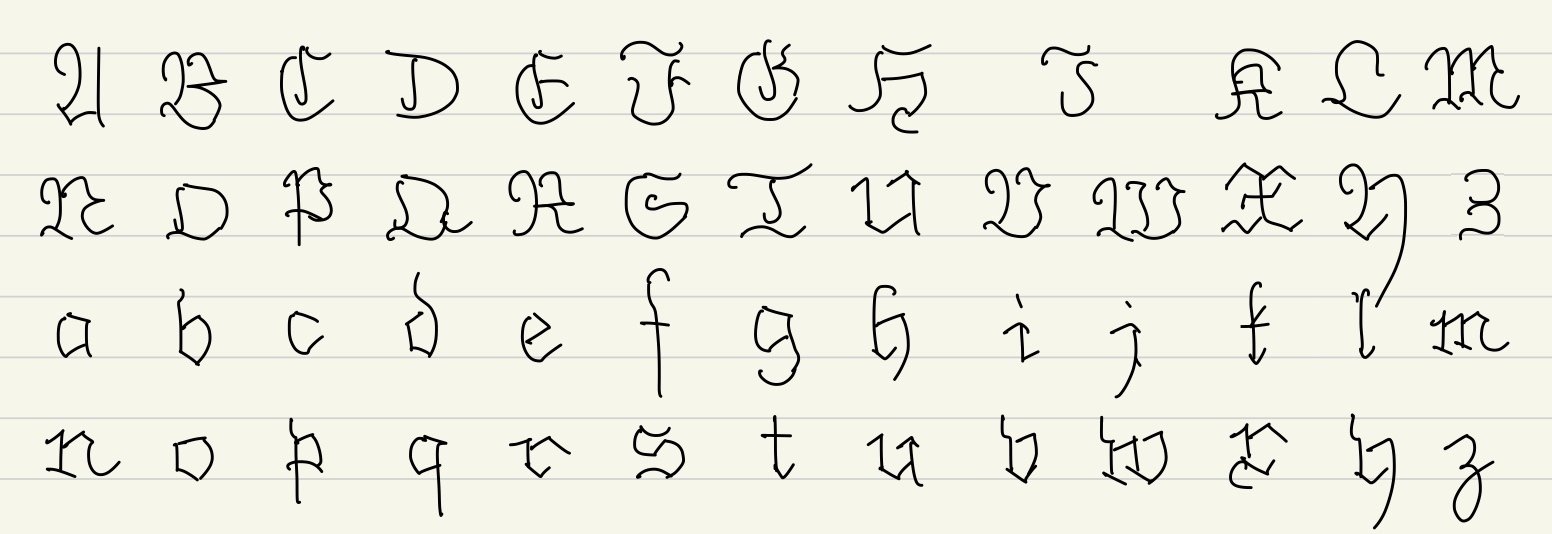 A B C D E F G H I K L M
N O P Q R S T U V W X Y Z
a b c d e f g h i j k l m
n o p q r s t u v w x y z